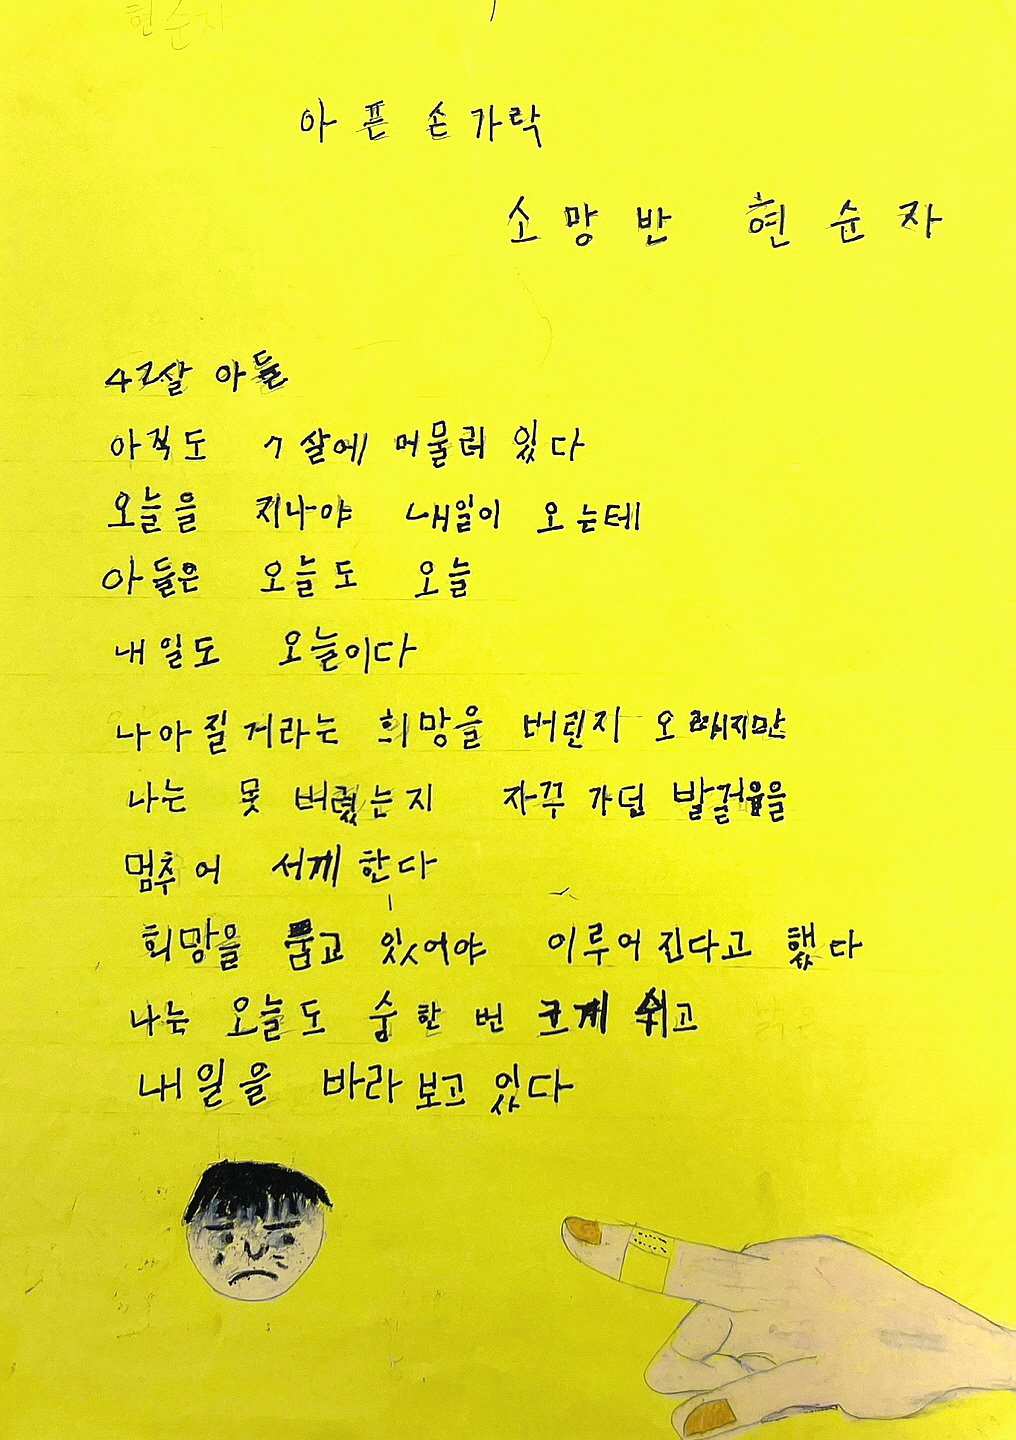 현순자
아픈 손가락
소망반 현순자
42살 아들
아직도 7살에 머물러 있다
오늘을 지나야 내일이 오는테
아들은 오늘도 오늘
내일도 오늘이다
나아질거라는 희망을 버린지 오래지만
나는 못 버렸는지 자꾸 가던 발걸음을
멈추어 서께 한다
희망을 품고 있어야 이루어진다고 했다
나는 오늘도 숨 한 번 크게 쉬고
내일을 바라보고 있다